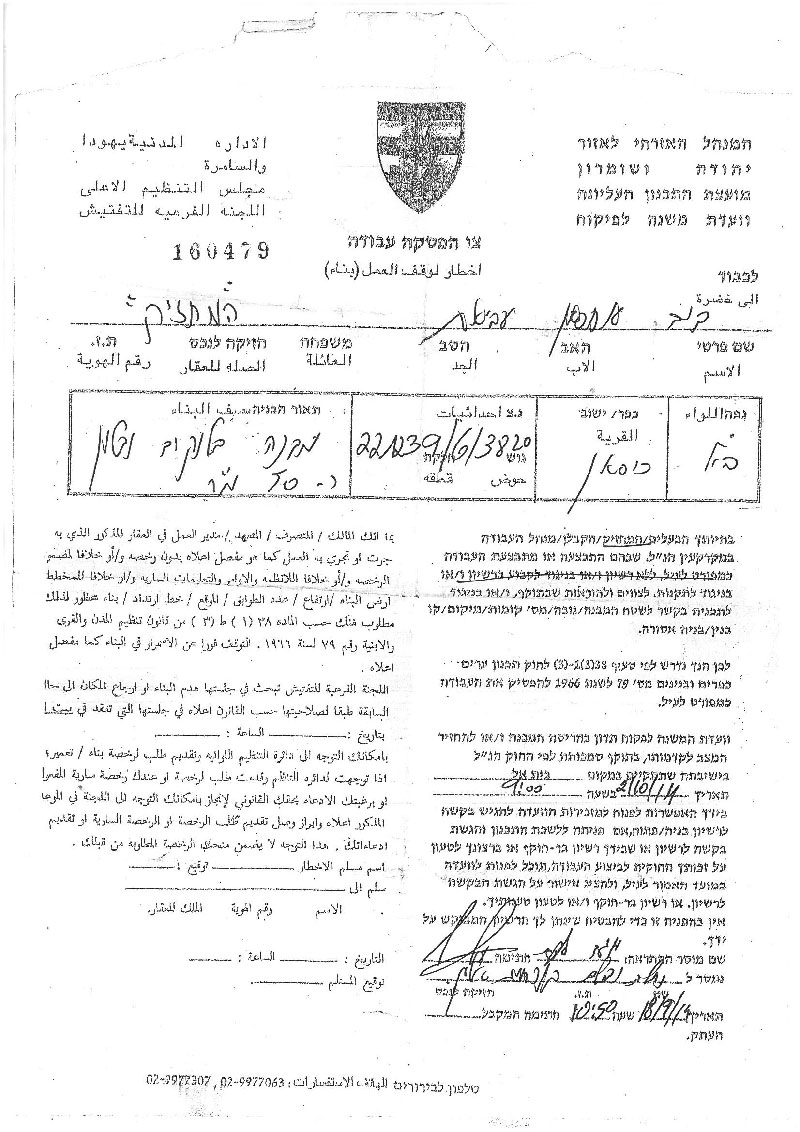 המנהל האזרחי לאזור
יהודה ושומרון
מועצת התכנון העליונה
וועדת משנה לפיקוח
الاداره المدنية يهودا
والسامرة
مجلس التنظيم الاعلى
اللجنه الفرعيه للتفتيش
160479
צו הפסקת עבודה
اخطار لوقف العمل (بناء)
לכבוד
الى حضرة
"המחזיק"
שם פרטי האב הסב משפחה חזיקה לנכס ת.ז.
الاسم الاب الجد العائلة الصله للعقار رقم الهوية
נפה اللواء
כפר/ישוב القرية
נ.צ احداثيات
גוש חלקה
حوض قطعه
תאור הבניה وصف البناء
ב"ל
כיסאן
221239/613820
מבנה בלוקים ובטון
בהיותך הבעלים/המחזיק/הקבלן/מנהל העבודה
במקרקעין הנ"ל, שבהם התבצעה או מתבצעת העבודה
כמפורט לעיל, ללא רשיון ו/או בניגוד לקבוע ברשיון ו/או
בניגוד לתקנות, לצווים ולהוראות שבתוקף, ו/או בניגוד
לתכנית בקשר לשטח המבנה/גובה/מס' קומות/מיקום/קו
בנין/בניה אסורה.
לכן הנך נדרש לפי סעיף 38(1)-(3) לחוק תכנון ערים
כפרים ובניינים מס' 79 לשנת 1966 להפסיק את העבודה
כמפורט לעיל.
וועדת המשנה לפקוח תדון בהריסת המבנה ו/או להחזיר
המצב לקדמותו, בתוקף סמכותה לפי החוק הנ"ל
בישיבתה שתקיים במקום בית אל
תאריך 2/10/14 בשעה 9:00
בידך האפשרות לפנות למזכירות הוועדה להגיש בקשה
לרשיון בניה/פתוח, אם פנית ללשכת התכנון והגשת
בקשה לרשיון או שבידך רשיון בר-תוקף או ברצונך לטעון
על זכותך החוקית לביצוע העבודה, תוכל לפנות לוועדה
במועד האמור לעיל, ולהציג אישור על הגשת הבקשה
לרשיון, או רשיון בר-תוקף ו/או לטעון טענותיך.
אין בהפניה זו כדי להבטיח שינתן לך הרשיון המבוקש על
ידך.
שם מוסר ההתראה: חתימה
נמסר ל
ת.ז. חזיקה לנכס
תאריך 18/9/14 שעה 10:50 חתימת המקבל
העתק.
بما انك المالك / المتصرف / المتعهد / مدير العمل في العقار المذكور الذي به
جرت او تجري به العمل كما هو مفصل اعلاه بدون رخصه و/أو خلافا لمضمون
الرخصه و/أو خلافا للانظمه والاوامر والتعليمات الساريه و/او خلافا للمخطط
ارض البناء /ارتفاع / عدد الطوابق / الموقع / خط ارتداد / بناء محظور لذلك
مطلوب منك حسب الماده ٣٨ (١) ط (٣) من قانون تنظيم المدن والقرى
والابنية رقم ٧٩ لسنة ١٩٦٦. التوقف فورا عن الاستمرار في البناء كما مفصل
اعلاه .
اللجنه الفرعية للتفتيش تبحث في جلستها هدم البناء او ارجاع المكان الى حالته
السابقة طبقا لصلاحيتها حسب القانون اعلاه في جلستها التي تنعقد في
بتاريخ: الساعة :
بامكانك التوجه الى دائرة التنظيم اللوائيه وتقديم طلب لرخصة بناء / تعمير؛
اذا توجهت لدائره التنظيم وقدمت طلب لرخصة او عندك رخصة سارية المفعول
او برغبتك الادعاء بحقك القانوني لإنجاز بامكانك التوجه الى اللجنة في الموعد
المذكور اعلاه وابراز وصل تقديم طلب الرخصة او الرخصة السارية او تقديم
ادعاءاتك . هذا التوجه لا يضمن منحك الرخصة المطلوبه من قبلك .
اسم مسلم الاخطار توقيع :
سلم الى
الاسم رقم الهوية الملك للعقار.
التاريخ : الساعة :
توقيع المستلم
טלפון לבירורים الهاتف الاستفسارات : 02-9977063 , 02-9977307